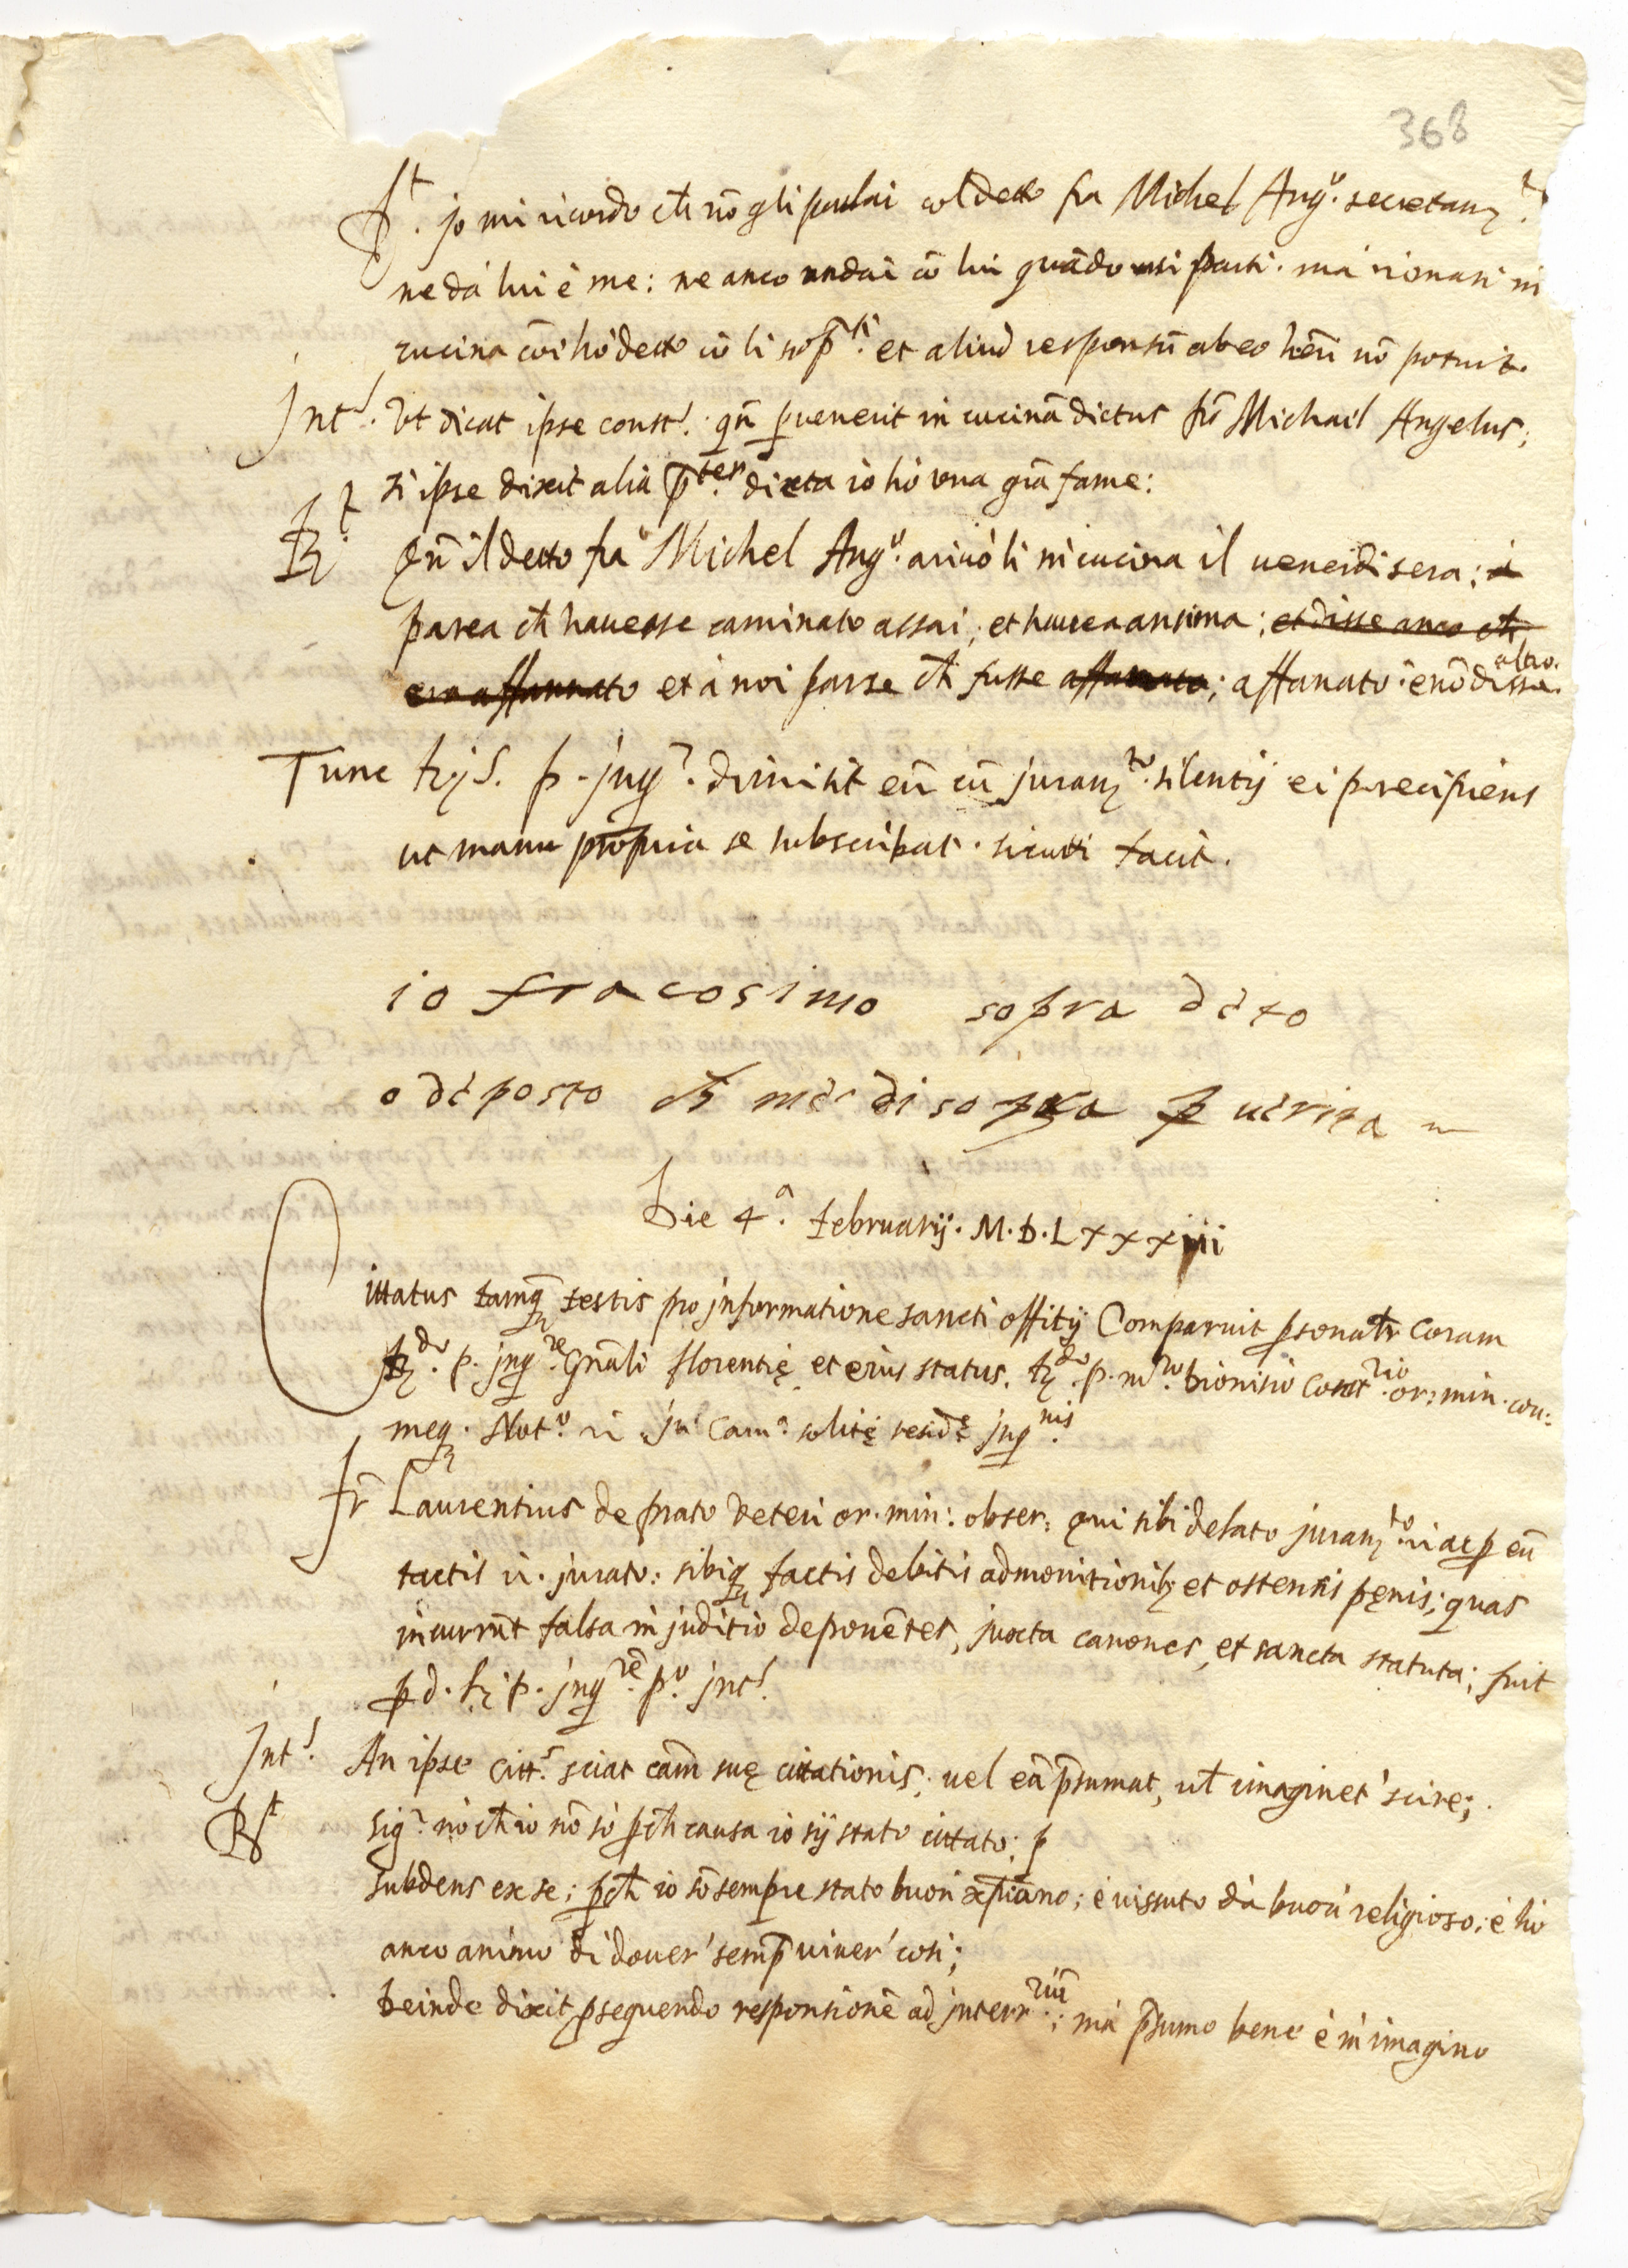 368
Rt. jo mi ricordo ch nõ gli parlai col detto fra Michel Angº. secretamte.
ne dà lui è me: ne anco andai cõ lui quãdo partì. mà rimasi in
cucina cõe hò detto cõ li soprti. et aliud responsũ ab eo herĩ nõ potuit.
Intˢ. Vt dicat ipse constˢ. qñ pvenerit in cucinã dictus fr̃ Michail Angelus;
si ipse dixit alia p̃ter dicta io hò una grã fame:
Rt. Qñ il detto fra Michel Angº. arivò li in cucina il venerdi sera; è
parea ch havesse caminato assai; et havea ansima; et disse anco ch
era affannato et à noi parse ch fusse affanato; affanato. è nõ disse altro.
Tunc p. jnqr. dimisit eũ cũ juramto. silentij ei precipiens
ut manu propria se subscribat. sicuti facit.
io fra cosimo sopra deto
o deposto ch me di sopra p verita
Die 4ª. februarij. M.D.Lxxxiiii
Cittatus tamq̃ testis pro jnformatione sancti offitij Comparuit psonatr Coram
Rdo. p. jnqre. Gñali florentię et eius status. Rdo. p. mro. Dionisio Costrio. or: min. con:
meq. Notº. in Camª. solitę resid. jnqnis.
Fr̃ Laurentius de prato veteri or. min: obser: qui sibi delato juramto. ac p eũ
tactis jurato: sibiq factis debitis admonitionibȝ et ostensis pęnis; quas
incurrũt falsa in juditio deponẽtes, juxta canones, et sancta statuta; fuit
p d. R. p. jnqre. pº. jntˢ.
Jntˢ. An ipse Cittˢ. sciat cam̃ suę cittationis; vel eã p̃sumat, ut imaginet' scire;
Rt sigr. nò ch io nõ sò pch causa io sij stato cittato; p
subdens ex se; pch io sõ sempre stato buon xp̃iano; è vissuto dà buon religioso; è hò
anco animo di dover' semp viver' cosi;
Deinde dixit psequendo responsionẽ ad jnterrriũ.; mà p̃sumo bene è m'imagino